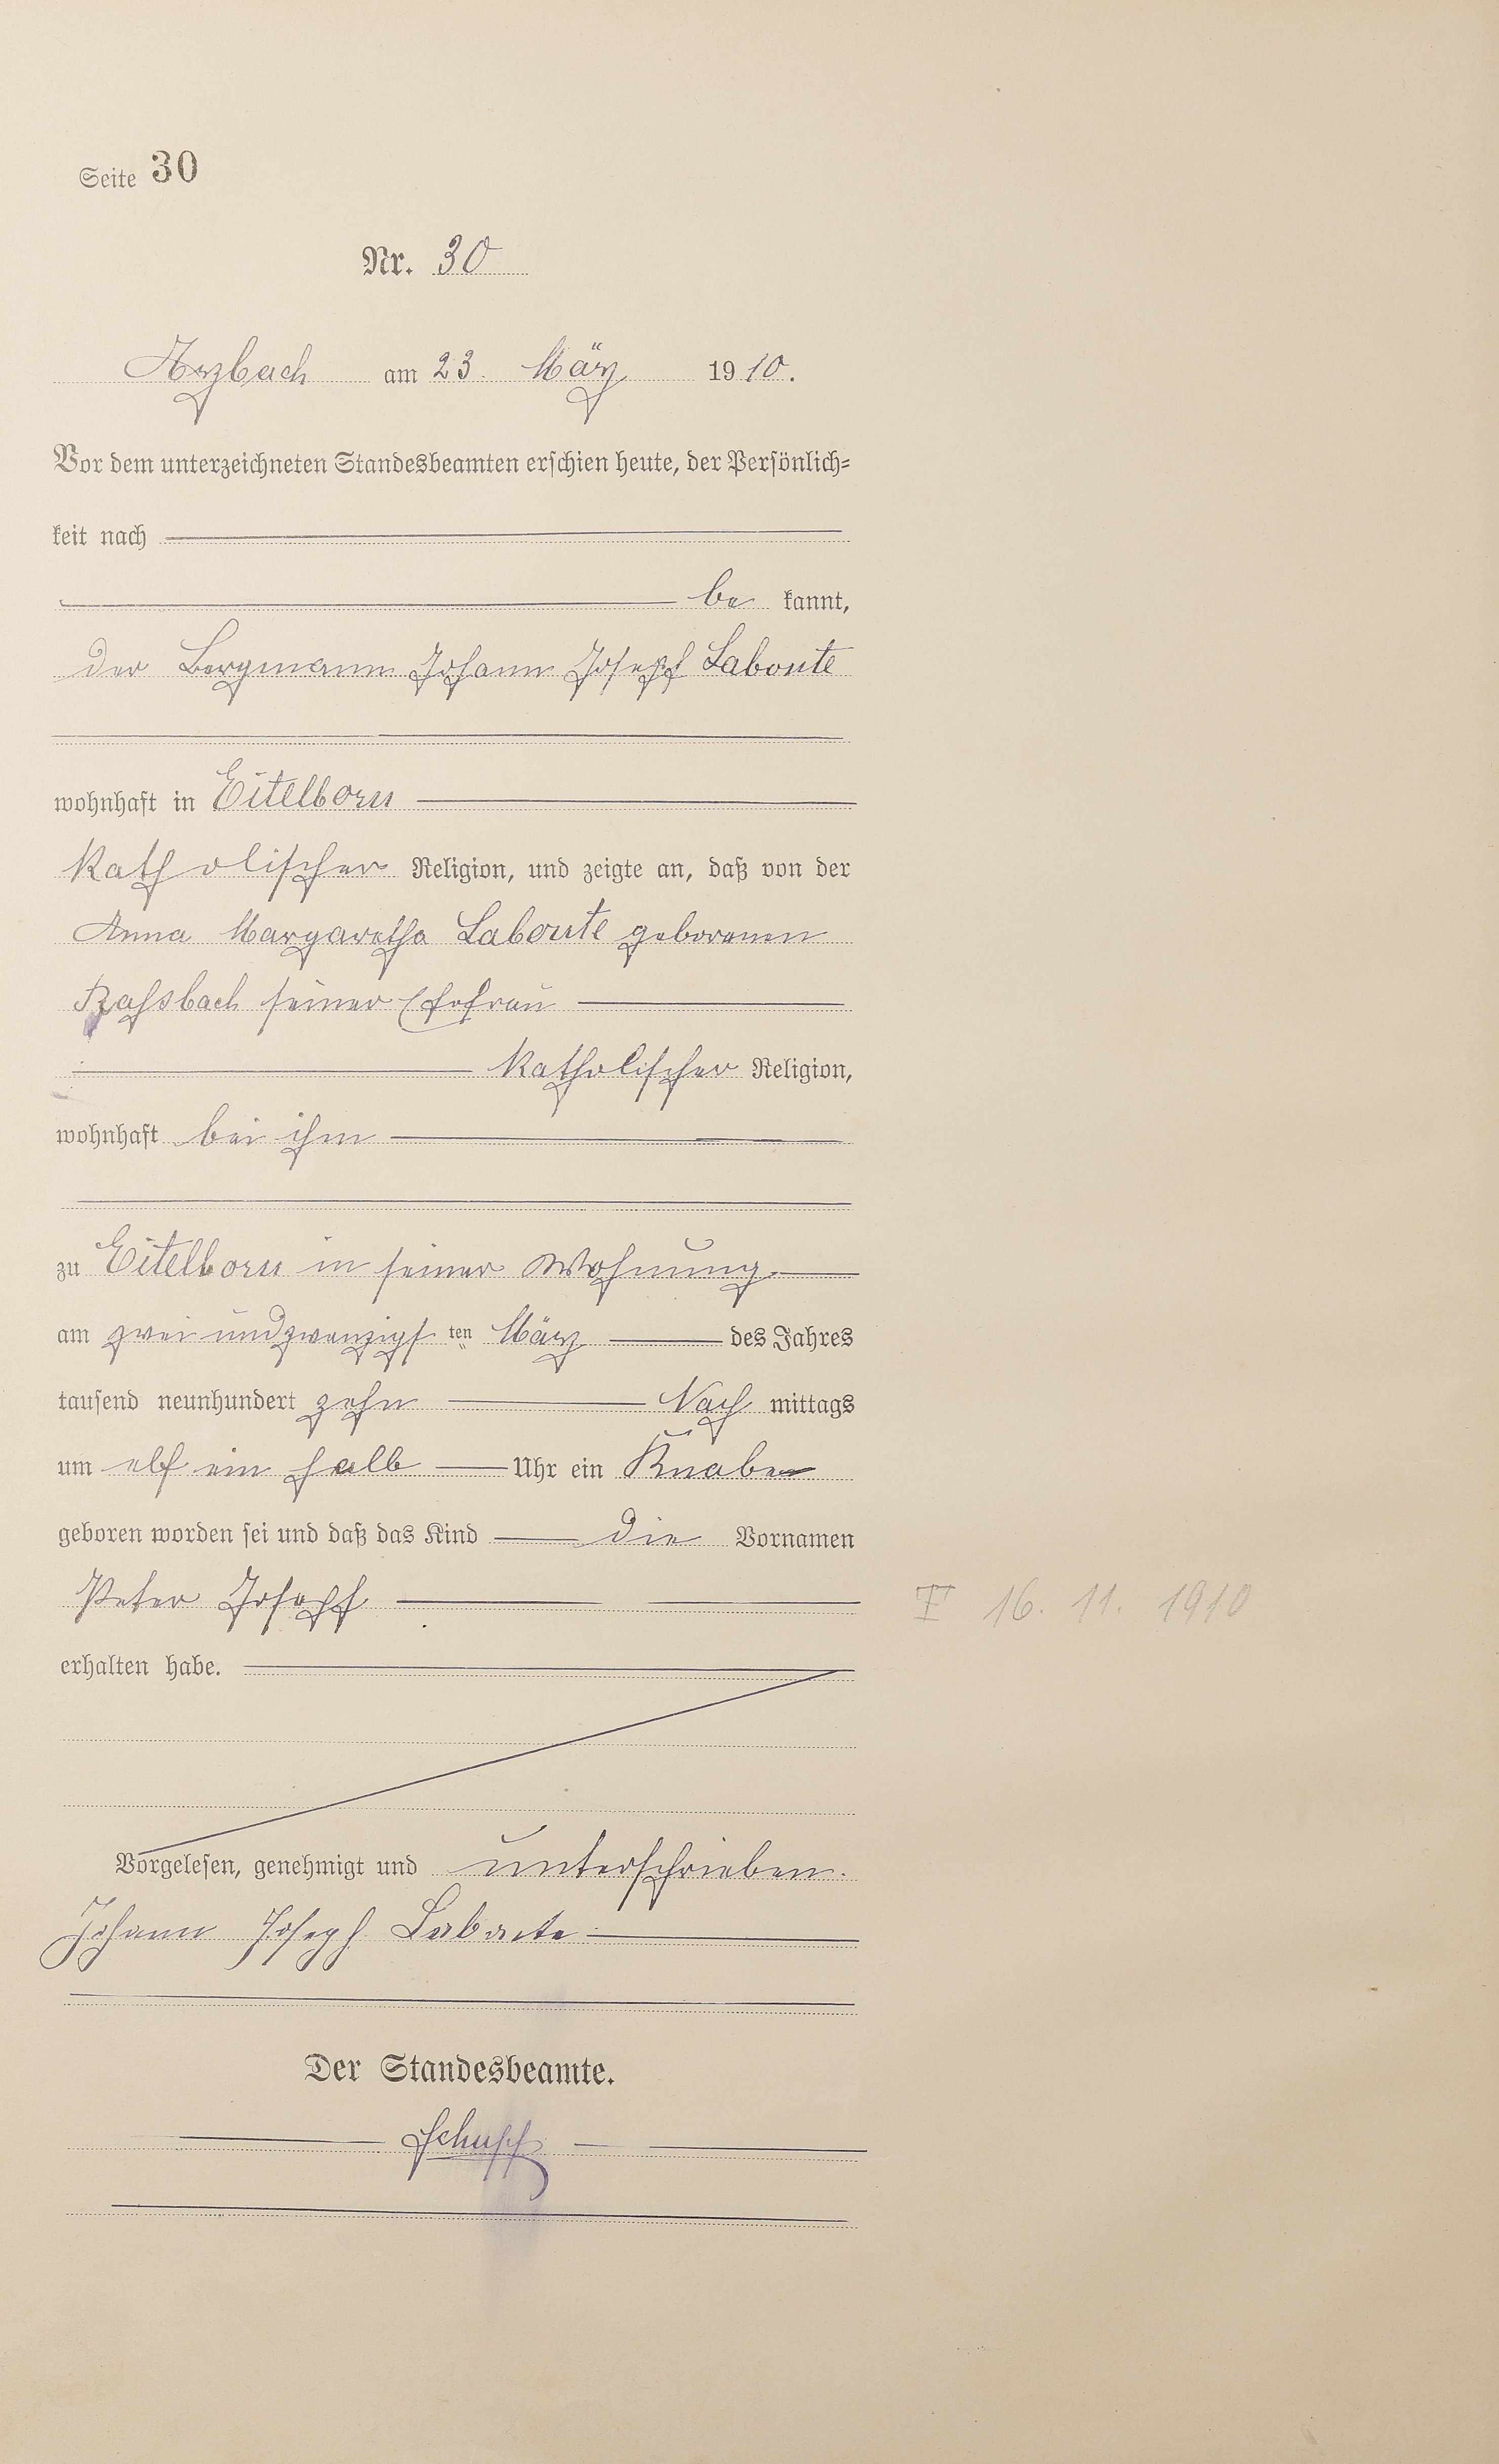 Seite 30
Nr. 30
Arzbach am 23. März 1910.
Vor dem unterzeichneten Standesbeamten erschien heute, der Persönlich=
keit nach
be kannt,
der Bergmann Johann Joseph Labonte
wohnhaft in Eitelborn
Katholischer Religion, und zeigte an, daß von der
Anna Margaretha Labonte geborenen
seiner Ehefrau
Katholischer Religion,
wohnhaft bei ihm
zu Eitelborn in seiner Wohnung
am zwei und zwanzigs ten März des Jahres
tausend neunhundert zehn Nach mittags
um elf ein halb Uhr ein Knabe
geboren worden sei und daß das Kind die Vornamen
Peter Joseph
16. 11. 1910
erhalten habe.
Vorgelesen, genehmigt und unterschrieben.
Johann Joseph Labonte
Der Standesbeamte.